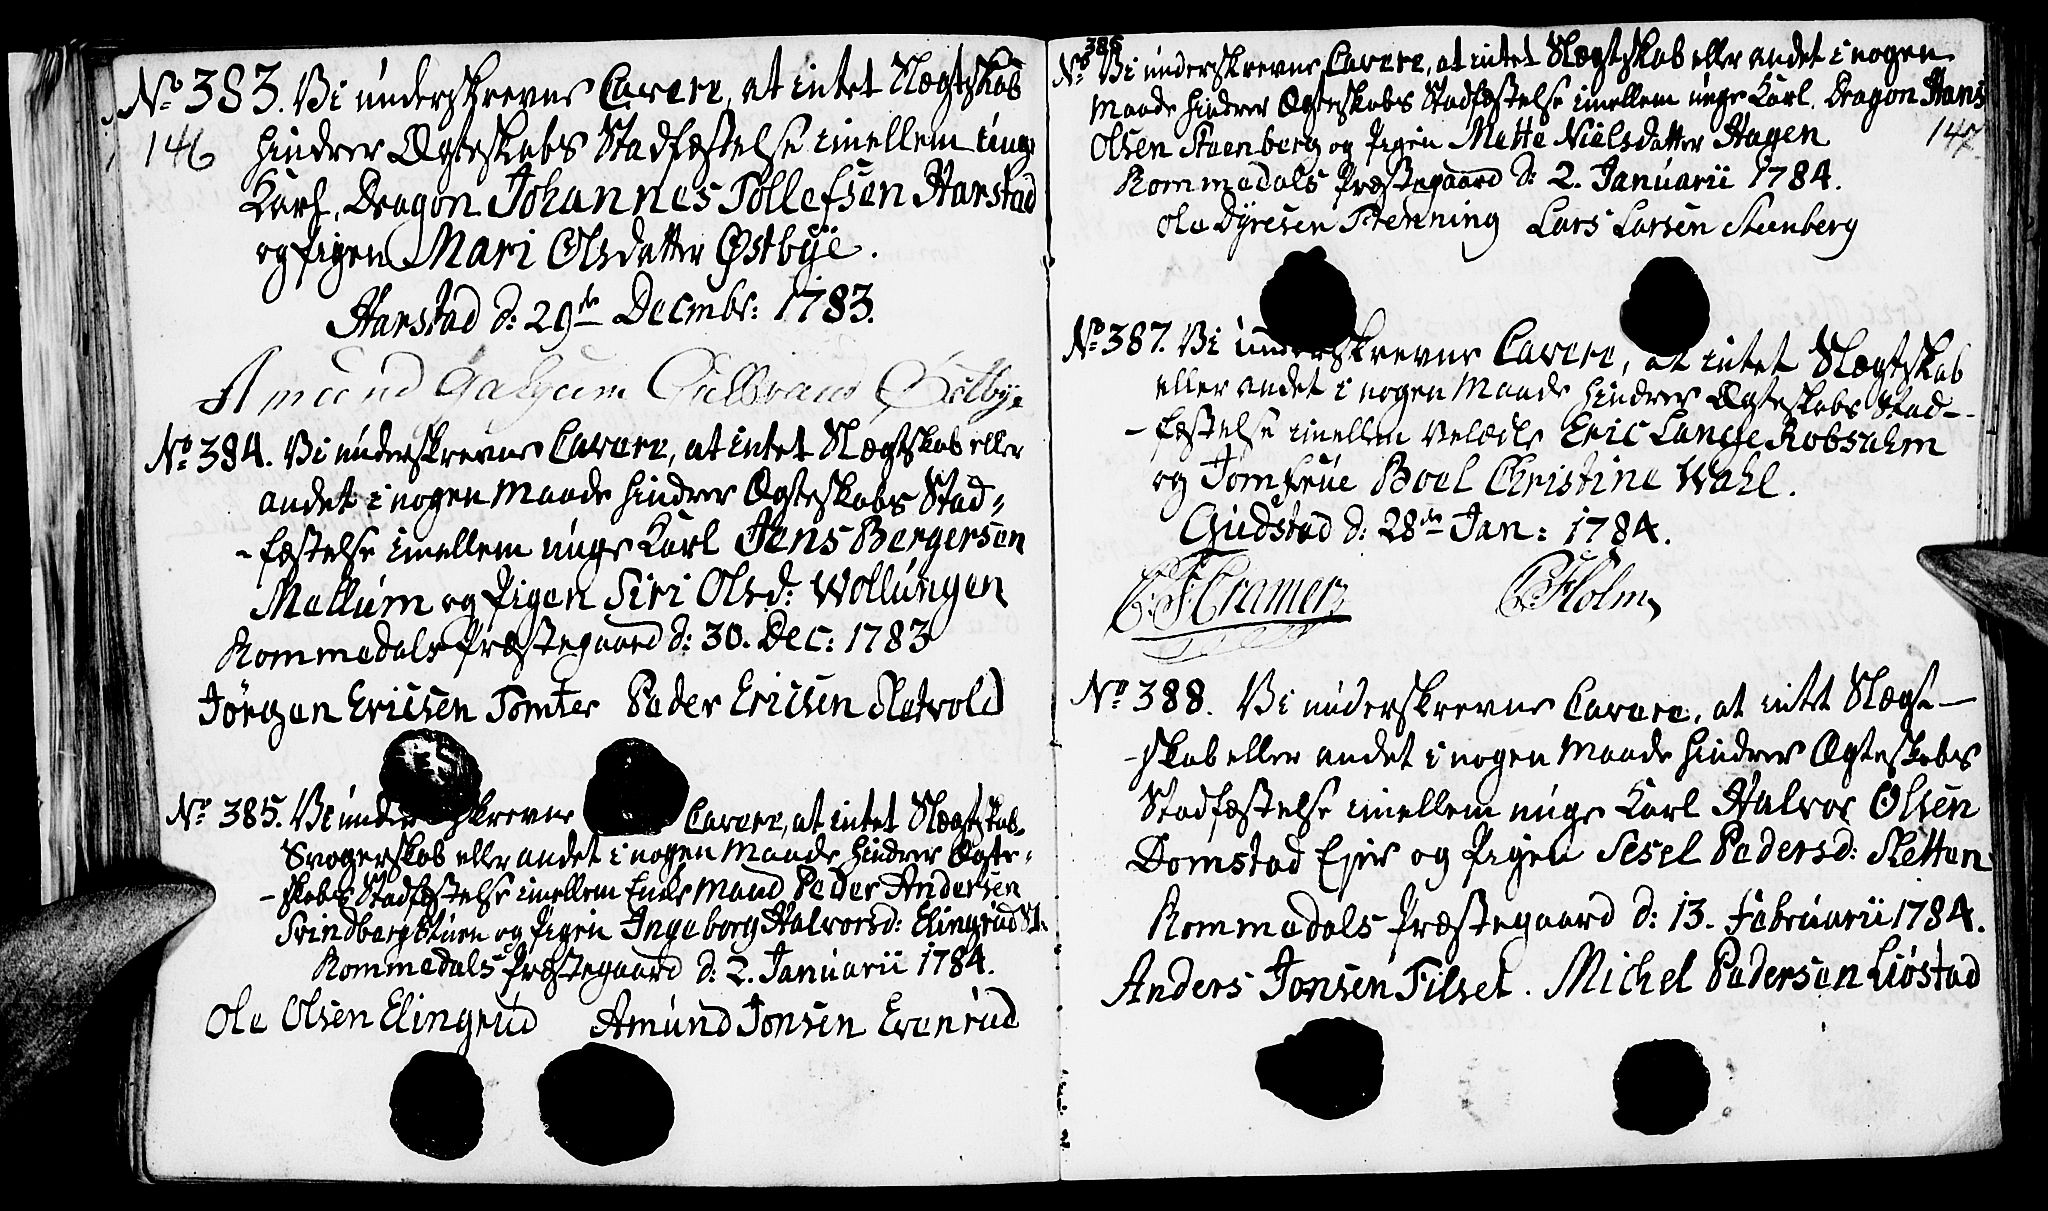 No 383. Vi underskrevne Cavere, at intet Slægtskab
146
hindrer Ægteskabs Stadfæstelse imellem unge
Karl, Dragon Johannes Tollefsen Harstad
og Pigen Mari Olsdatter Østbÿe.
Harstad d: 29de Decmbr: 1783.
Amund Østbye
No 384. Vi underskrevne Cavere, at intet Slægtskab eller
andet i nogen Maade hindrer Ægteskabs Stad=
-fæstelse imellem unge Karl Jens Bergersen
Mellum og Pigen Siri Olsd: Wollungen
Rommedals Præstegaard d: 30. Dec: 1783
Jørgen Ericsen Tomter Peder Ericsen Sletvold
No 385. Vi underskrevne Cavere, at intet Slægtskab
Svogerskab eller andet i nogen Maade hindrer Ægte=
-skabs Stadfæstelse imellem Enke Mand Peder Andersen
Svindbergstuen og Pigen Ingeborg Halvorsd: Elingrud
Rommedals Præstegaard d: 2. Januarii 1784.
Ole Olsen Elingrud Amund Jonsen Evenrud
No 386 Vi underskrevne Cavere, at intet Slægtskab eller andet i nogen
Maade hindrer Ægteskabs Stadfæstelse imellem unge Karl, Dragon Hans
Olsen Steenberg og Pigen Mette Nielsdatter Hagen
147.
Rommedals Præstegaard d: 2. Januarii 1784.
Ole Dyresen Stenning Lars Larsen Steenberg
No 387. Vi underskrevne Cavere, at intet Slægtskab
eller andet i nogen Maade hindrer Ægteskabs Stad-
-fæstelse imellem Velædle Eric Lange Robsahm
og Jomfrue Boel Christine Wahl.
Gudstad d: 28de Jan: 1784.
Cramer Holm
No 388. Vi underskrevne Cavere, at intet Slægt-
-skab eller andet i nogen Maade hindrer Ægteskabs
Stadfæstelse imellem unge Karl Halvor Olsen
Domstad Ejer og Pigen Sesel Pedersd: Sletten
Rommedals Præstegaard d: 13. Februarii 1784.
Anders Jonsen Tilset. Michel Pedersen Liøstad